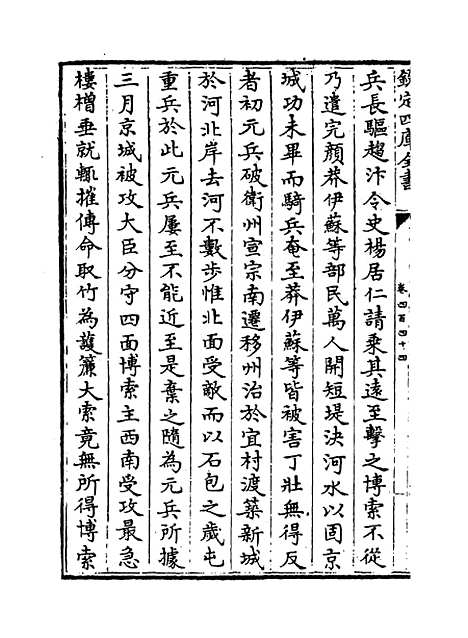 欽定四庫全書
卷四百四十四
兵長驅趨汴令史楊居仁請乗其遠至擊之博索不從
乃遣完顔莽伊蘇等部民萬人開短堤決河水以固京
城功未畢而騎兵奄至莽伊蘇等皆被害丁壯無得反
者初元兵破衛州宣宗南遷移州治於宜村渡築新城
於河北岸去河不數步惟北面受敵而以石包之歲屯
重兵於此元兵屢至不能近至是棄之隨為元兵所據
三月京城被攻大臣分守四面博索主西南受攻最急
樓櫓垂就輒摧傳命取竹為䕶簾大索竟無所得博索